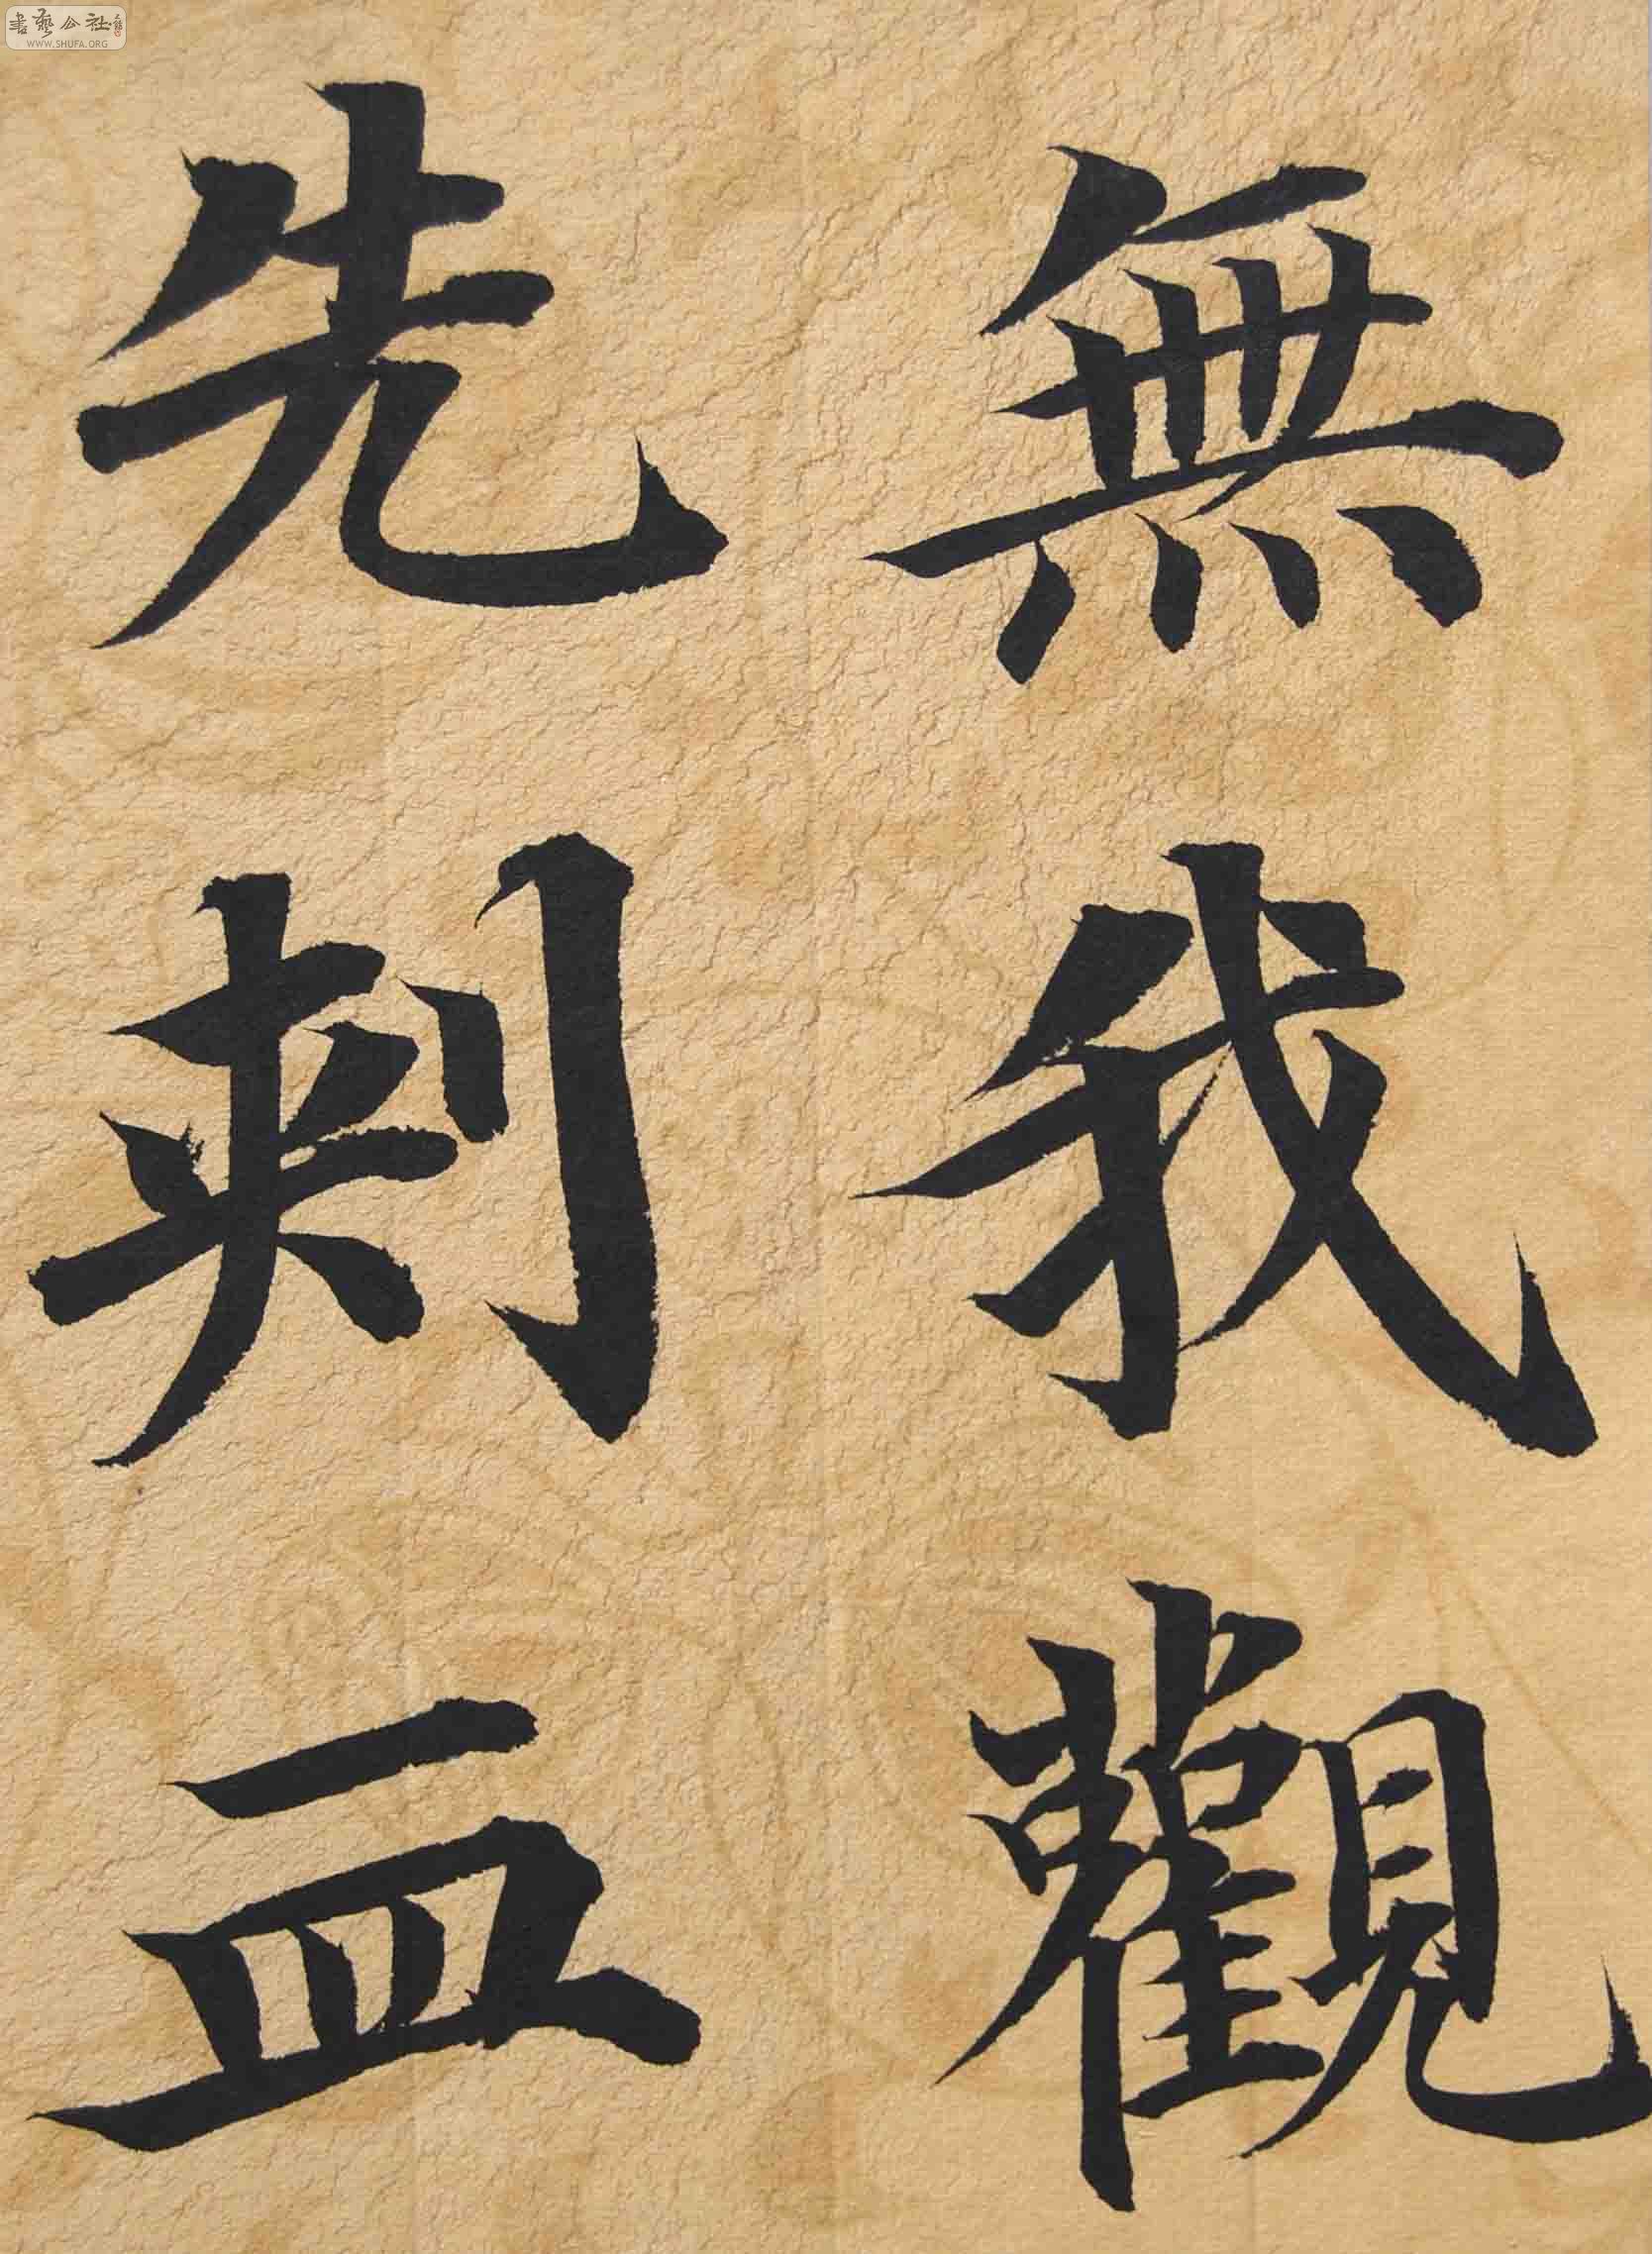 書藝公社
WWW.SHUFA.ORG
無我觀
先刺血